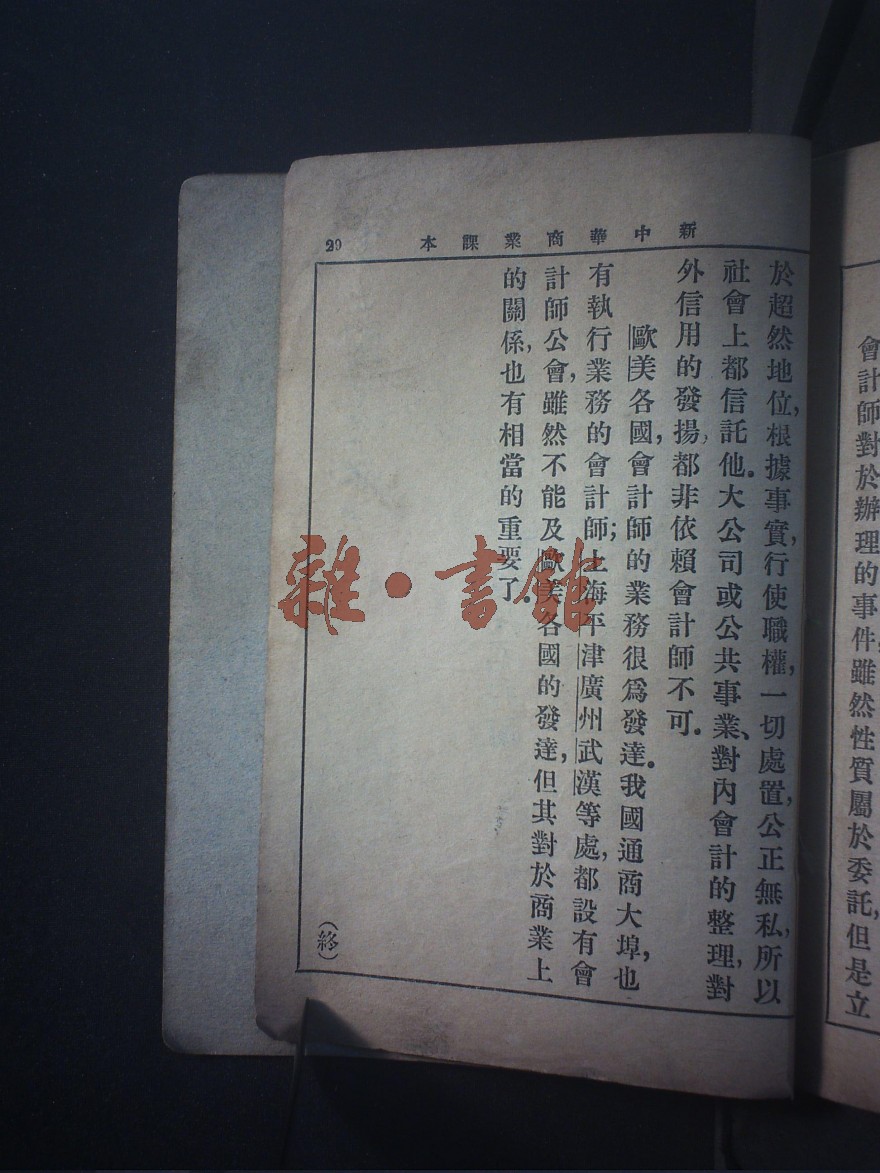 會計師對於辦理的事件,雖然性質屬於委託,但是立
新中華商業課本
20
於超然地位,根據事實,行使職權,一切處置,公正無私,所以
社會上都信託他。大公司或公共事業、對內會計的整理,對
外信用的發揚,都非依賴會計師不可。
歐美各國,會計師的業務很爲發達。我國通商大埠,也
有執行業務的會計師;上海平津廣州武漢等處,都設有會
計師公會,雖然不能及歐美各國的發達,但其對於商業上
的關係,也有相當的重要了。
(終)
雜·書館